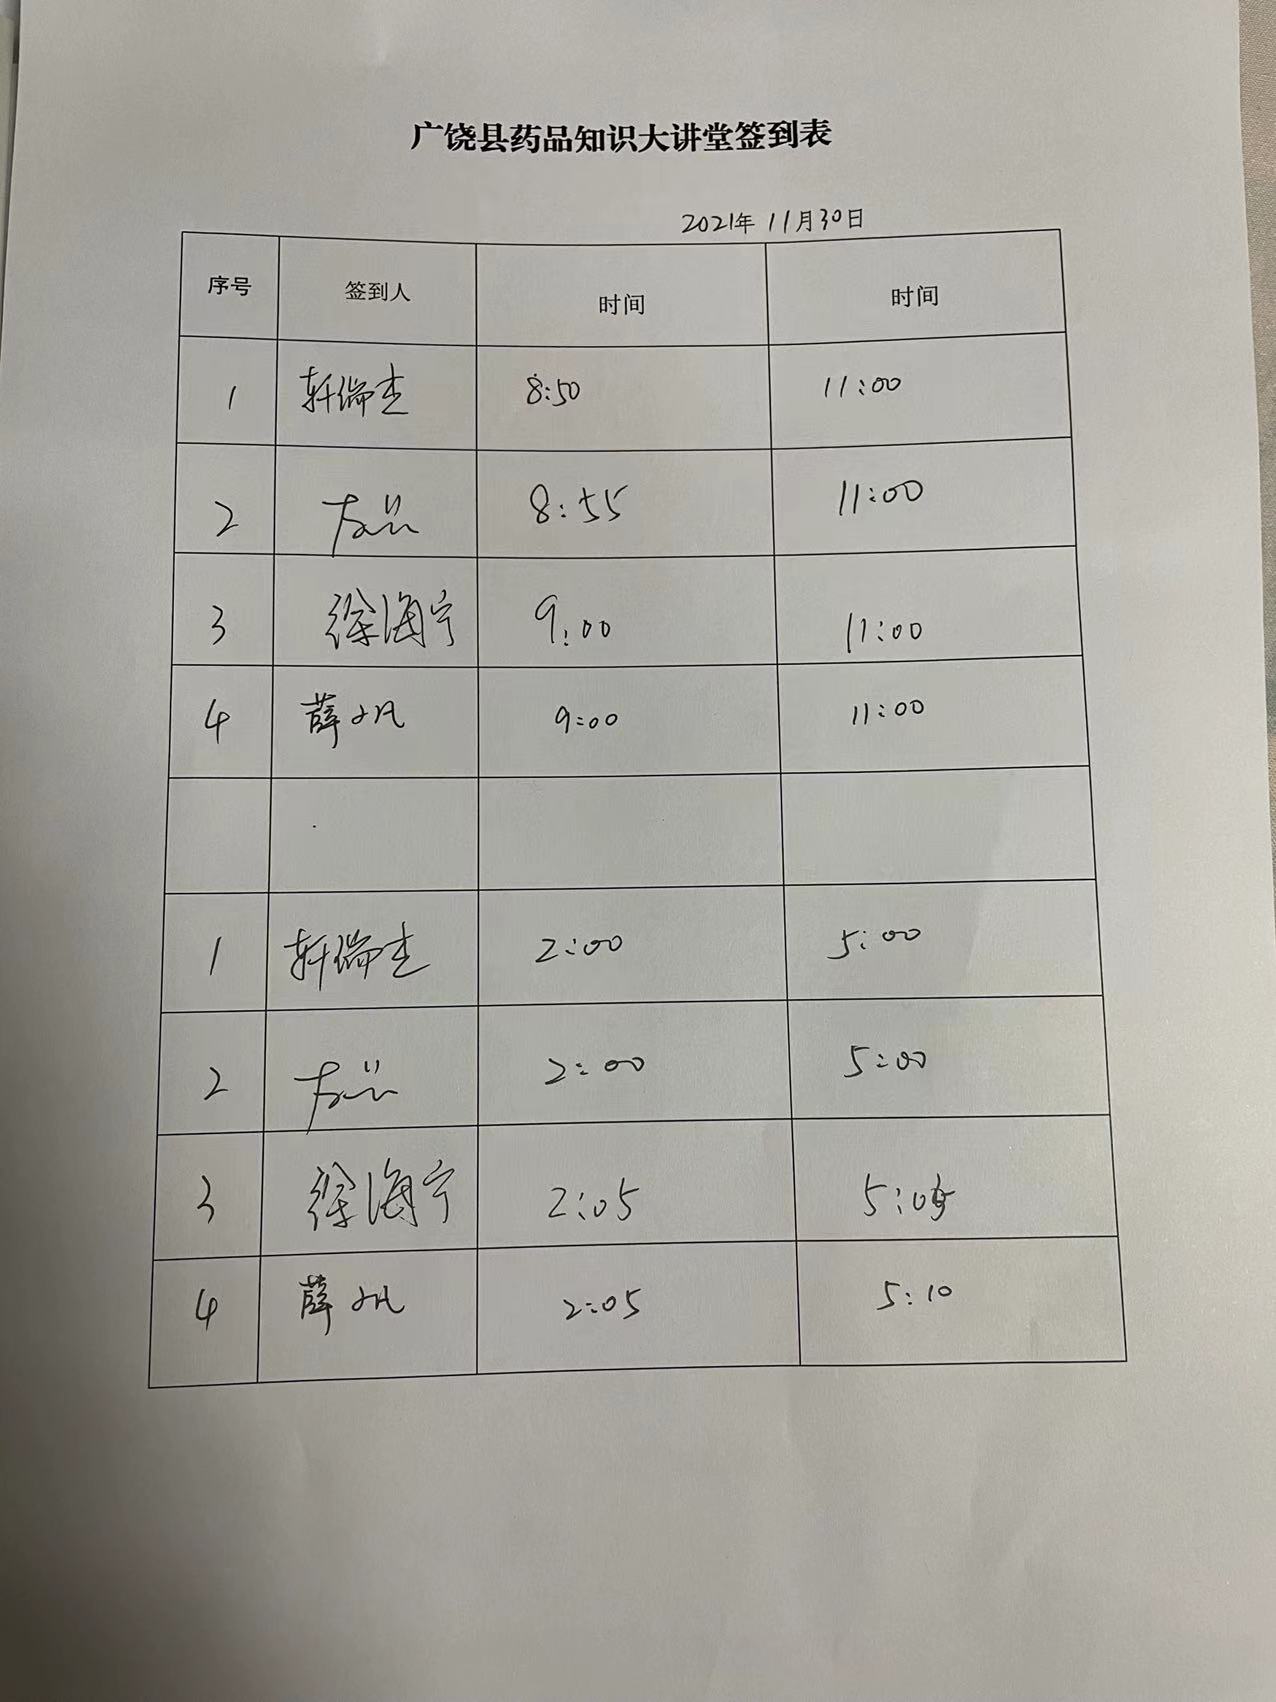 广饶县药品知识大讲堂签到表
2021年 11月30日
序号 签到人 时间 时间
1 轩瑞杰 8:50 11:00
2 8:55 11:00
3 徐海宁 9:00 11:00
4 薛 9:00 11:00
1 轩瑞杰 2:00 5:00
2 2:00 5:00
3 徐海宁 2:05 5:05
4 薛 2:05 5:10